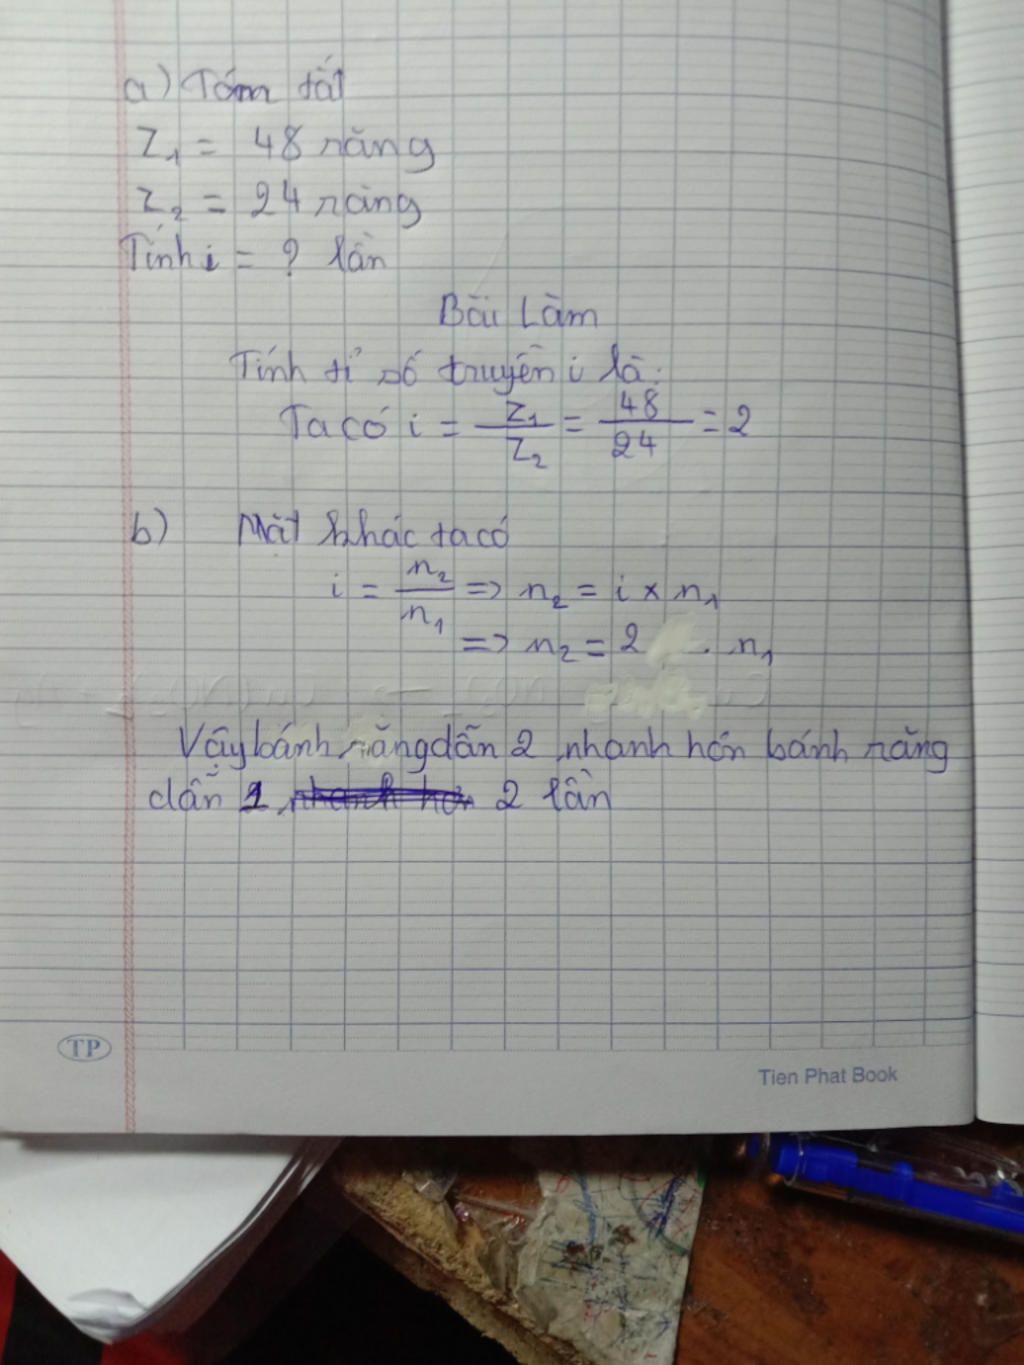 a) Tóm tắt
Z₁ = 48 răng
Z₂ = 24 răng
Tính i = ? lần
Bài Làm
Tính tỉ số truyền i là:
Ta có i = Z₁/Z₂ = 48/24 = 2
b) Mặt khác ta có
i = n₂/n₁ => n₂ = i x n₁
=> n₂ = 2 . n₁
Vậy bánh răng dẫn 2 nhanh hơn bánh răng
dẫn 1 nhanh hơn 2 lần
TP
Tien Phat Book